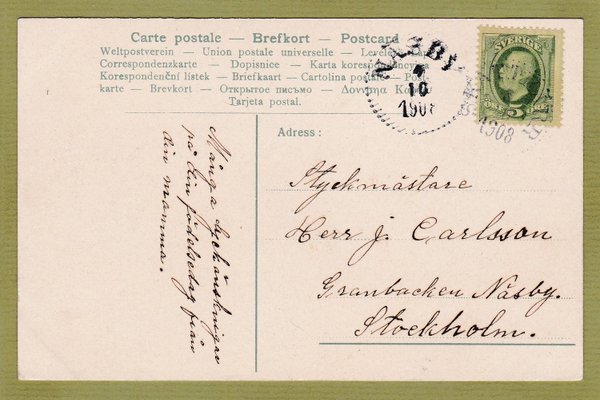 Carte postale — Brefkort — Postcard
Weltpostverein — Union postale universelle —
Correspondenzkarte — Dopisnice — Karta korespondencyjna
Korespondenční lístek — Briefkaart — Cartolina postale —
karte — Brevkort — Открытое письмо —
Tarjeta postal.
NÄSBY
10
1908
SVERIGE
5
1908
Adress :
Styckmästare
Herr J. Carlsson
Granbacken Näsby.
Stockholm.
Många lyckönskningar
på din födelsedag från
din mamma.